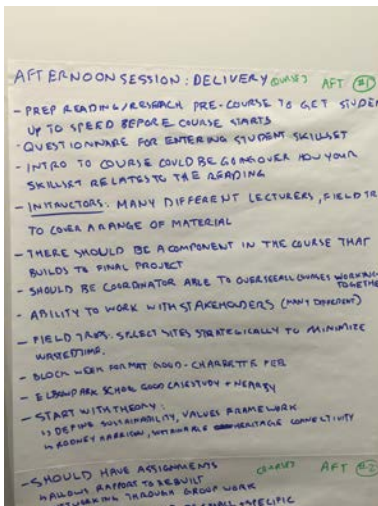 AFTERNOON SESSION: DELIVERY (COURSE) AFT #1
- PREP READING/RESEACH PRE-COURSE TO GET STUDE
UP TO SPEED BEFORE COURSE STARTS
- QUESTIONNARE FOR ENTERING STUDENT SKILLSET
- INTRO TO COURSE COULD BE GOING OVER HOW YOUR
SKILLSET RELATES TO THE READING
- INSTRUCTORS: MANY DIFFERENT LECTURERS, FIELD TR
TO COVER A RANGE OF MATERIAL
- THERE SHOULD BE A COMPONENT IN THE COURSE THAT
BUILDS TO FINAL PROJECT
- SHOULD BE COORDINATOR ABLE TO OVERSEE ALL COURSES WORKING
TOGETHE
- ABILITY TO WORK WITH STAKEHOLDERS (MANY DIFFERENT)
- FIELD TRIPS: SELECT SITES STRATEGICALLY TO MINIMIZE
WASTED TIME.
- BLOCK WEEK FORMAT GOOD - CHARRETTE FER
- ELBOW PARK SCHOOL GOOD CASE STUDY + NEARBY
- START WITH THEORY:
↳ DEFINE SUSTAINABILITY, VALUES FRAMEWORK
↳ RODNEY HARRISON, HERITAGE CONNECTIVITY
- SHOULD HAVE ASSIGNMENTS (COURSES) AFT #2
↳ ALLOWS RAPPORT TO BE BUILT
THROUGH GROUP WORK
SMALL + SPECIFIC